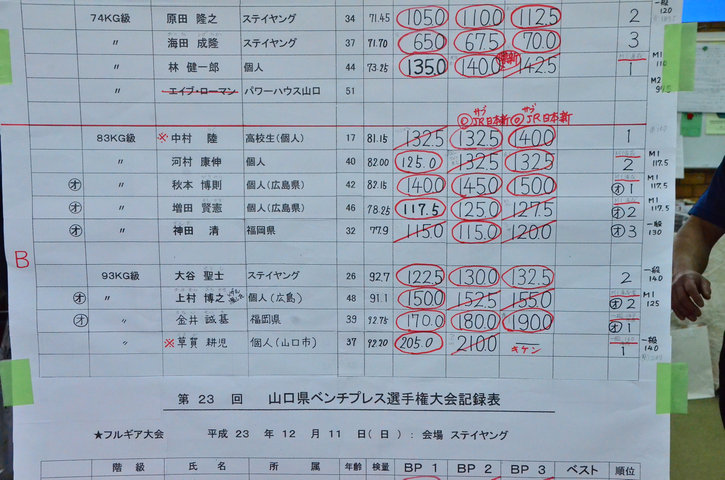 74KG級 原田 隆之 ステイヤング 34 71.45 105.0 110.0 112.5 2 一般 120
〃 海田 成隆 ステイヤング 37 71.70 65.0 67.5 70.0 3
〃 林 健一郎 個人 44 73.25 135.0 140.0 142.5 1 M1 110
〃 エイブ・ローマン パワーハウス山口 51 M2 94.5
サブ サブ
◎JR日本新 ◎JR日本新
83KG級 ※中村 陸 高校生(個人) 17 81.15 132.5 132.5 140.0 1
〃 河村 康伸 個人 40 82.00 125.0 132.5 132.5 2 M1 117.5
オ 〃 秋本 博則 個人(広島県) 42 82.15 140.0 145.0 150.0 オ1 M1 117.5
オ 〃 増田 賢憲 個人(広島県) 46 78.25 117.5 125.0 127.5 オ2 M1 117.5
オ 〃 神田 清 福岡県 32 77.9 115.0 115.0 120.0 オ3 一般 130
B
93KG級 大谷 聖士 ステイヤング 26 92.7 122.5 130.0 132.5 2 一般 140
オ 〃 上村 博之 個人(広島) 48 91.1 150.0 152.5 155.0 オ2 M1 125
オ 〃 金井 誠基 福岡県 39 92.75 170.0 180.0 190.0 オ1
〃 ※草賀 耕児 個人(山口市) 37 92.20 205.0 210.0 キケン 1 一般 140
第 23 回 山口県ベンチプレス選手権大会記録表
★フルギア大会 平成 23 年 12 月 11 日(日): 会場 ステイヤング
階級 氏名 所属 年齢 検量 BP 1 BP 2 BP 3 ベスト 順位